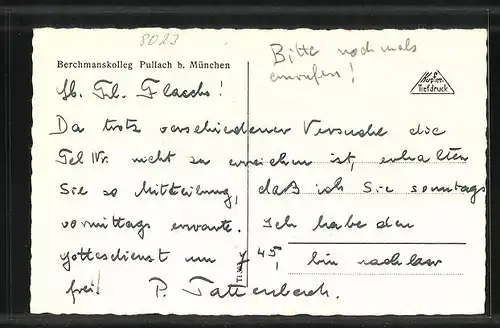 8023
Bitte nochmals
anrufen!
Berchmanskolleg Pullach b. München
Kupfer-
Tiefdruck
Lb. Frl. Flaschs!
Da trotz verschiedener Versuche die
Tel Nr. nicht zu erreichen ist, erhalten
Sie so Mitteilung, daß ich Sie sonntags
vormittags erwarte. Ich habe den
Gottesdienst um 7 45, bin nachher
frei! P. Tattenbach.